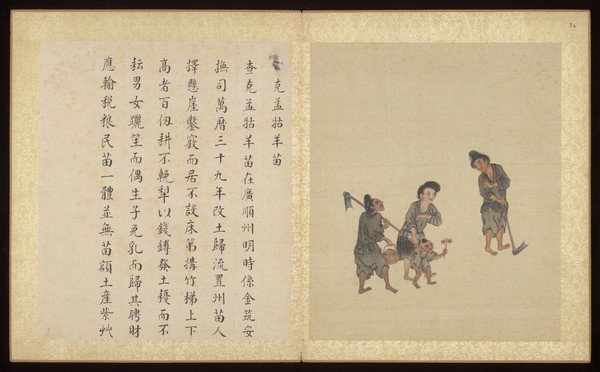 克孟牯羊苗
查克孟牯羊苗在廣順州明時係金筑安
撫司萬曆三十九年改土歸流置州苗人
擇懸崖鑿竅而居不設床第搆竹梯上下
高者百仞耕不輓犁以錢鎛發土耰而不
耘男女躧笙而偶生子免乳而歸其聘財
應輸稅粮民苗一體並無苗額土產紫艸